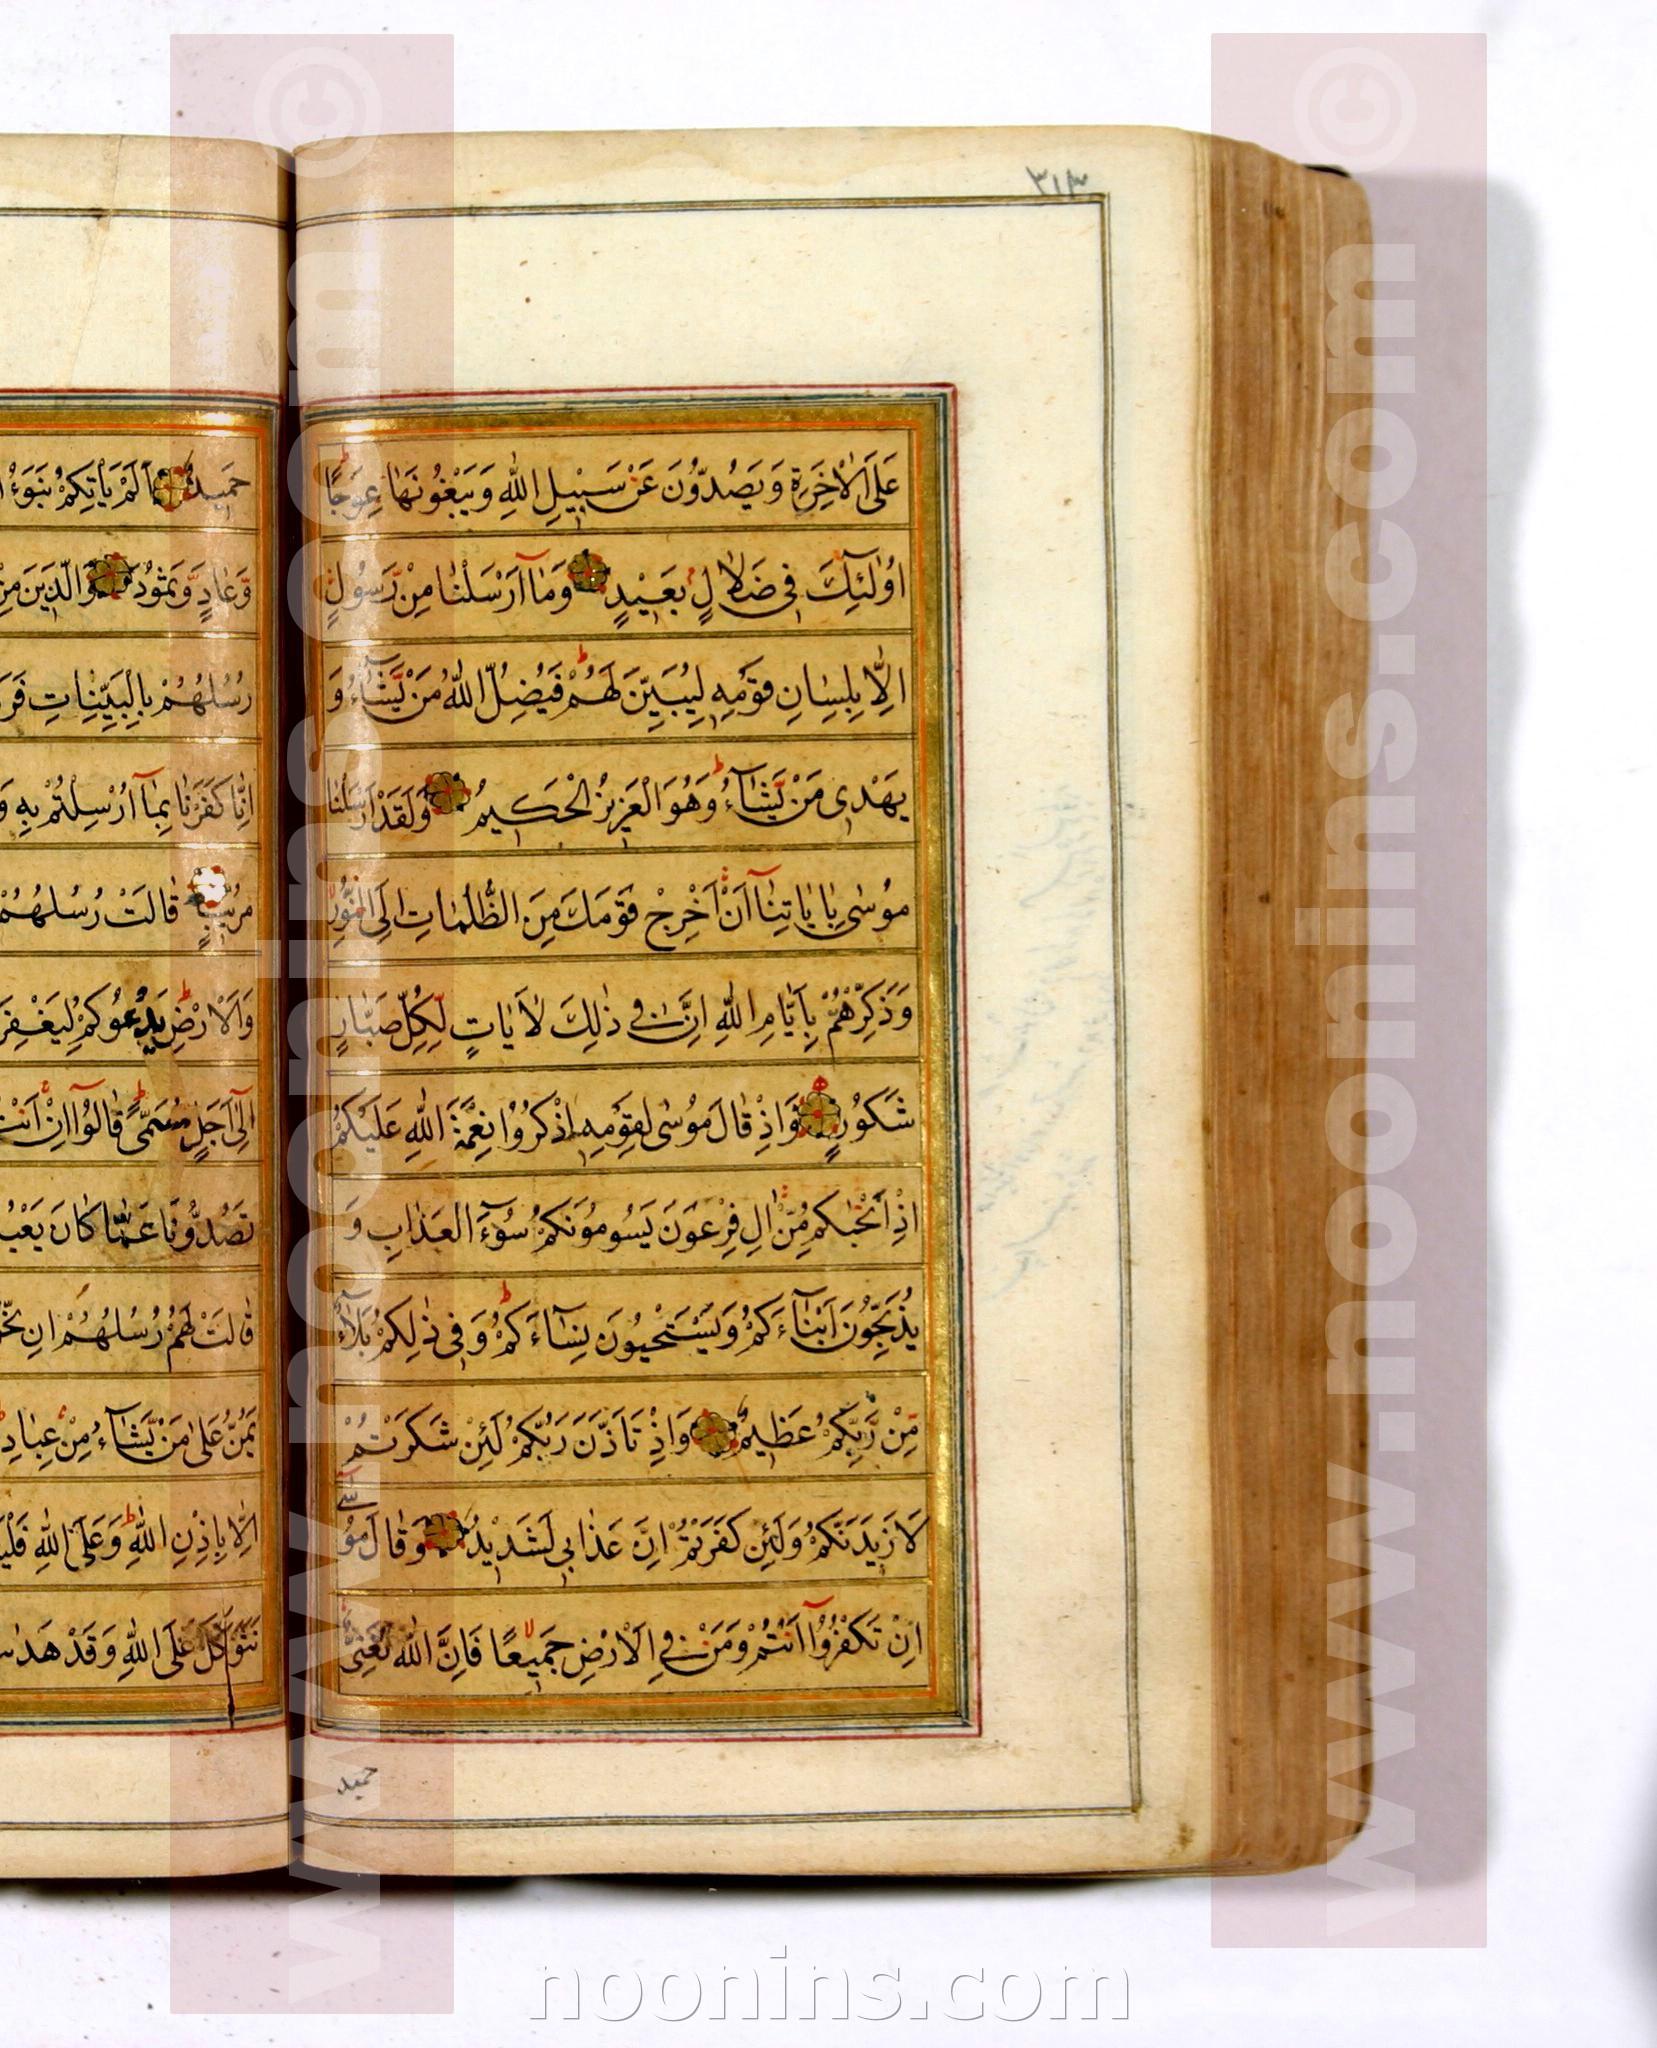 ٣١٣
عَلَى الْاٰخِرَةِ وَيَصُدُّونَ عَنْ سَبِيْلِ اللّٰهِ وَيَبْغُونَهَا عِوَجًا
اُولٰئِكَ فِى ضَلَالٍ بَعِيْدٍ وَمَا اَرْسَلْنَا مِنْ رَسُولٍ
اِلَّا بِلِسَانِ قَوْمِهِ لِيُبَيِّنَ لَهُمْ فَيُضِلُّ اللّٰهُ مَنْ يَشَاءُ وَ
يَهْدِى مَنْ يَشَاءُ وَهُوَ الْعَزِيزُ الْحَكِيمُ وَلَقَدْ اَرْسَلْنَا
مُوسٰى بِاٰيَاتِنَا اَنْ اَخْرِجْ قَوْمَكَ مِنَ الظُّلُمَاتِ اِلَى النُّوْرِ
وَذَكِّرْهُمْ بِاَيَّامِ اللّٰهِ اِنَّ فِى ذٰلِكَ لَاٰيَاتٍ لِكُلِّ صَبَّارٍ
شَكُورٍ وَاِذْ قَالَ مُوسٰى لِقَوْمِهِ اِذْكُرُوْا نِعْمَةَ اللّٰهِ عَلَيْكُمْ
اِذْ اَنْجٰيكُمْ مِنْ اٰلِ فِرْعَوْنَ يَسُومُونَكُمْ سُوءَ الْعَذَابِ وَ
يُذَبِّحُونَ اَبْنَاءَكُمْ وَيَسْتَحْيُونَ نِسَاءَكُمْ وَفِى ذٰلِكُمْ بَلَاءٌ
مِنْ رَبِّكُمْ عَظِيمٌ وَاِذْ تَاَذَّنَ رَبُّكُمْ لَئِنْ شَكَرْتُمْ
لَاَزِيدَنَّكُمْ وَلَئِنْ كَفَرْتُمْ اِنَّ عَذَابِى لَشَدِيْدٌ وَقَالَ مُوْسٰى
اِنْ تَكْفُرُوْا اَنْتُمْ وَمَنْ فِى الْاَرْضِ جَمِيْعًا فَاِنَّ اللّٰهَ لَغَنِىٌّ
حميد
حَمِيدٌ اَلَمْ يَأْتِكُمْ نَبَؤُا
وَعَادٍ وَثَمُوْدَ وَالَّذِينَ مِنْ
رُسُلُهُمْ بِالْبَيِّنَاتِ
اِنَّا كَفَرْنَا بِمَا اُرْسِلْتُمْ بِهِ
مُرِيْبٍ قَالَتْ رُسُلُهُمْ
وَالْاَرْضِ يَدْعُوكُمْ لِيَغْفِرَ
اِلٰى اَجَلٍ مُسَمًّى قَالُوْا اِنْ
تَصُدُّونَا عَمَّا كَانَ
قَالَتْ لَهُمْ رُسُلُهُمْ اِنْ
يَمُنُّ عَلٰى مَنْ يَشَاءُ مِنْ
اِلَّا بِاِذْنِ اللّٰهِ وَعَلَى اللّٰهِ
نَتَوَكَّلَ عَلَى اللّٰهِ وَقَدْ
© www.noonins.com
© www.noonins.com
noonins.com